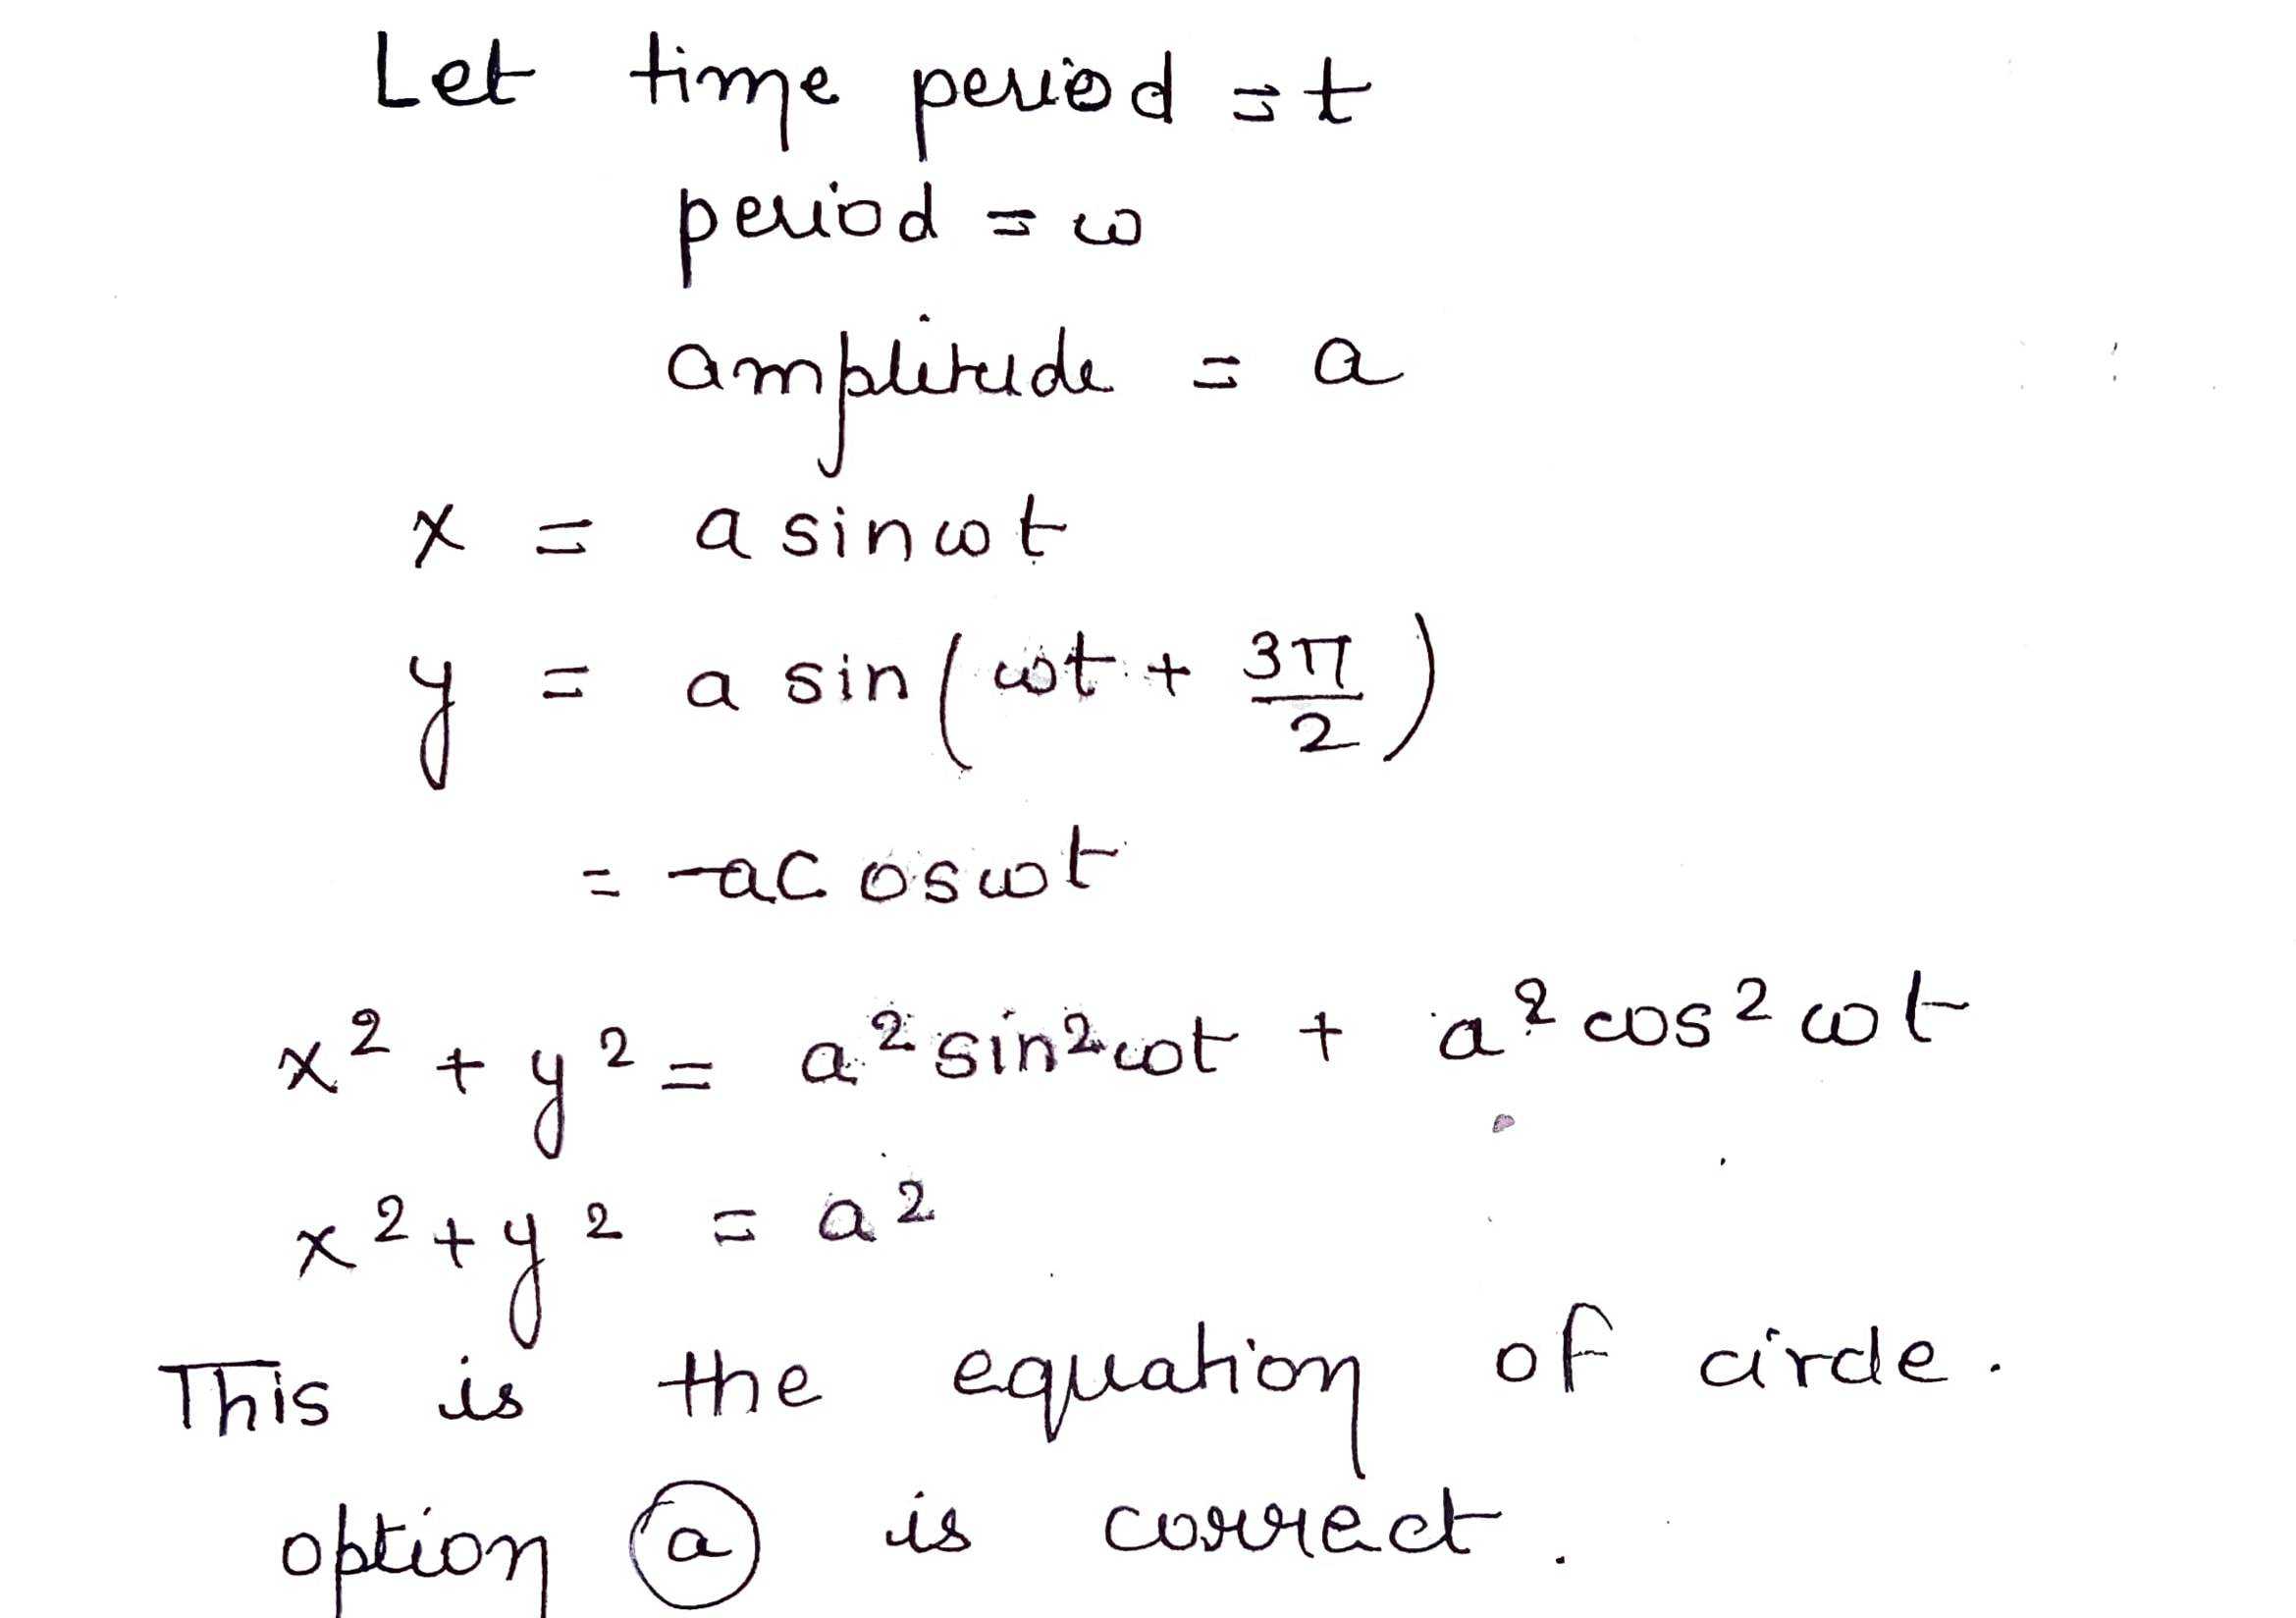 Let time period = t
period = ω
amplitude = a
x = a sinωt
y = a sin(ωt + 3π/2)
= -acosωt
x² + y² = a² sin²ωt + a² cos² ωt
x² + y² = a²
This is the equation of circle.
option ⓐ is correct.